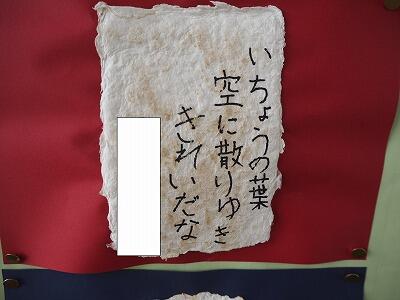 いちょうの葉
空に散りゆき
きれいだな